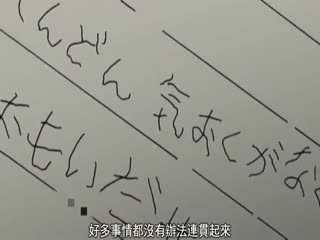 んだん きおくがな
おもいだ
好多事情都沒有辦法連貫起來